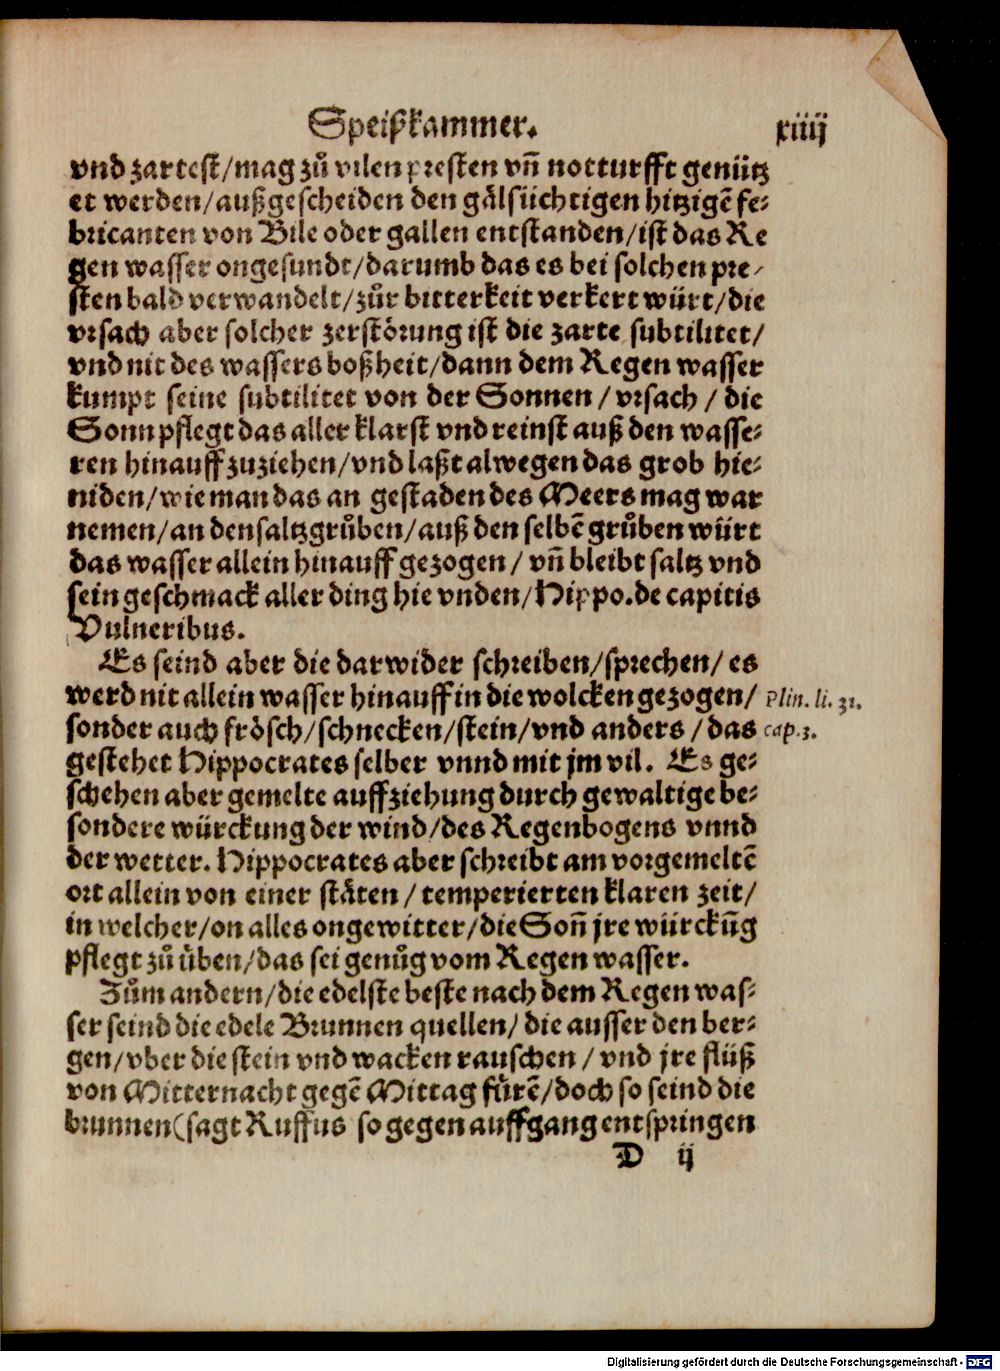 Speißkammer.
xiiij
vnd zartest/mag zů vilen presten vñ notturfft genütz
et werden/außgescheiden den gälsüchtigen hitzigẽ fe⸗
bricanten von Bile oder gallen entstanden/ist das Re
gen wasser ongesundt/darumb das es bei solchen pre⸗
sten bald verwandelt/zůr bitterkeit verkert würt/die
vrsach aber solcher zerstörung ist die zarte subtilitet/
vnd nit des wassers boßheit/dann dem Regen wasser
kumpt seine subtilitet von der Sonnen / vrsach / die
Sonn pflegt das aller klarst vnd reinst auß den wasse⸗
ren hinauff zuziehen/vnd laßt alwegen das grob hie⸗
niden/wie man das an gestaden des Meers mag war
nemen/an den saltzgrůben/auß den selbẽ grůben würt
das wasser allein hinauff gezogen / vñ bleibt saltz vnd
sein geschmack aller ding hie vnden/Hippo.de capitis
Vulneribus.
Es seind aber die darwider schreiben/sprechen/ es
werd nit allein wasser hinauff in die wolcken gezogen/
Plin. li. 31.
sonder auch frösch/schnecken/stein/vnd anders / das
cap.3.
gestehet Hippocrates selber vnnd mit jm vil. Es ge⸗
schehen aber gemelte auffziehung durch gewaltige be⸗
sondere würckung der wind/des Regenbogens vnnd
der wetter. Hippocrates aber schreibt am vorgemeltẽ
ort allein von einer stäten / temperierten klaren zeit/
in welcher/on alles ongewitter/die Soñ jre würckũg
pflegt zů üben/das sei genůg vom Regen wasser.
Zům andern/die edelste beste nach dem Regen was⸗
ser seind die edele Brunnen quellen/ die ausser den ber⸗
gen/vber die stein vnd wacken rauschen / vnd jre flüß
von Mitternacht gegẽ Mittag fürẽ/doch so seind die
brunnen(sagt Ruffus so gegen auffgang entspringen
D ij
Digitalisierung gefördert durch die Deutsche Forschungsgemeinschaft - DFG